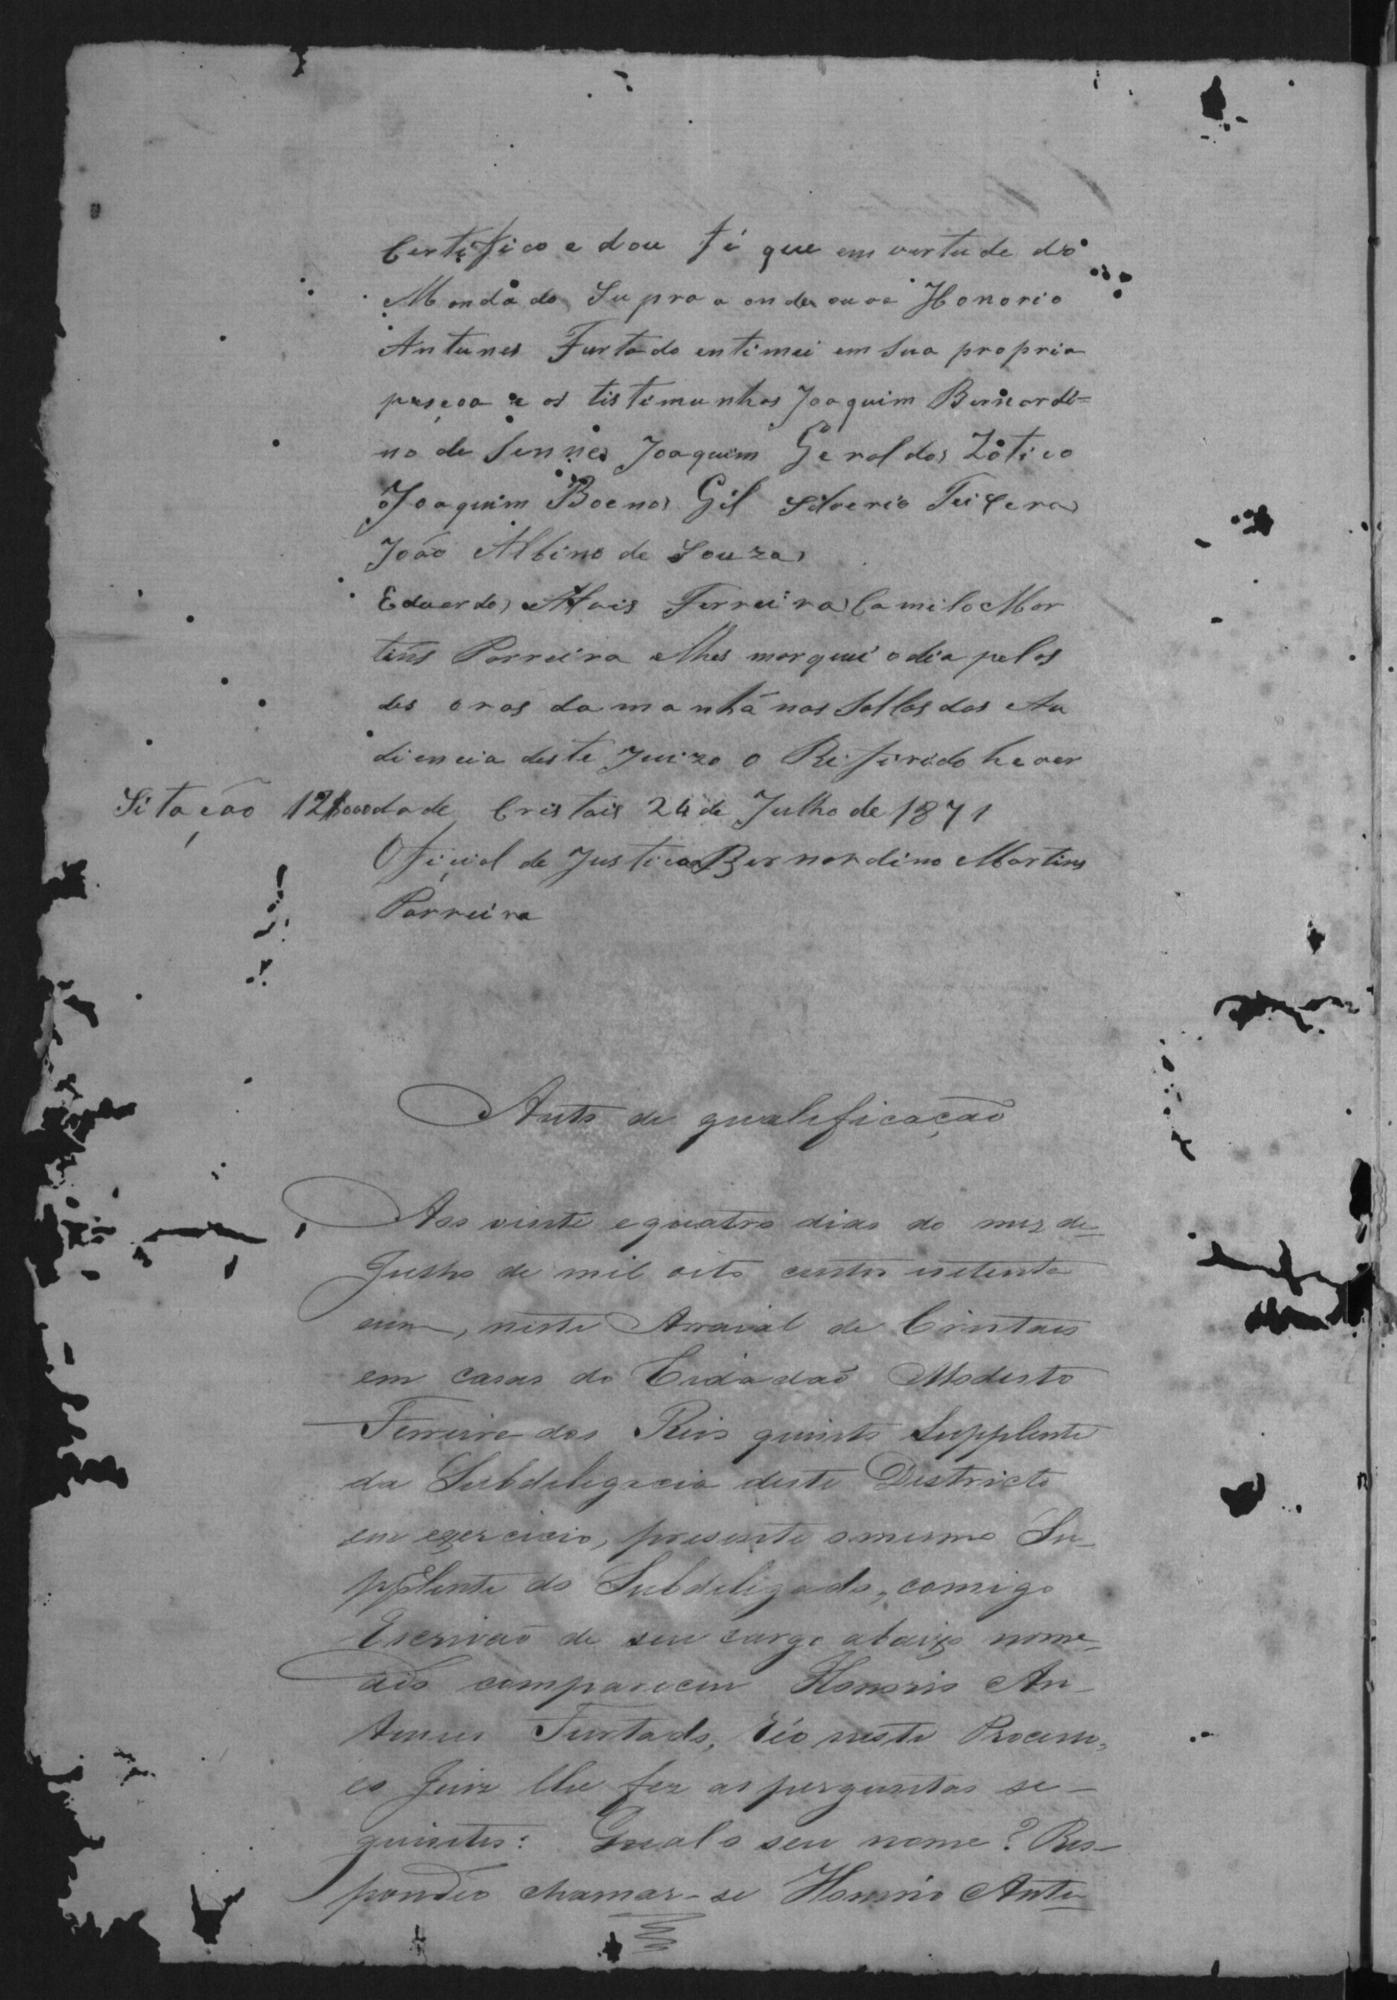 Certifico e dou fé que em vertude do
Mondado Supra a onde Honorio
Antunes Furtado entimei em sua propria
peseoa e os tistimunhos Joaquim Bernordi=
no de Senne Joaquim Geraldo Zotico
Joaquim Boeno Gil Silverio Teixera
João Albino de Souza
Eduardo Ferreira Camilo Mar
tins Parreira elhes marquei o dia pelos
des oras da manhã nas Sallas das Au
diencia deste Juizo o Referido he ver
Sitação 12$000 dade Cristais 24 de Julho de 1871
Oficial de Justica Bernordino Martins
Parreira
Auto de qualificação
Aos vinte e quatro dias do mez de
Julho de mil oito centos e setenta
eum, neste Arraial de Cristaes
em casas do Cidadão Modesto
Ferreira dos Reis quinto Supplente
da Subdelegacia deste Districto
em exercicio, presente o mesmo Su-
pplente do Subdelegado, comigo
Escrivão de seu cargo abaixo nome-
ado compareceu Honorio An-
tunes Furtado, réo neste Processo,
eo Juiz lhe fez as perguntas se-
guintes: Qual o seu nome? Res-
pondeo chamar-se Honorio Antu-